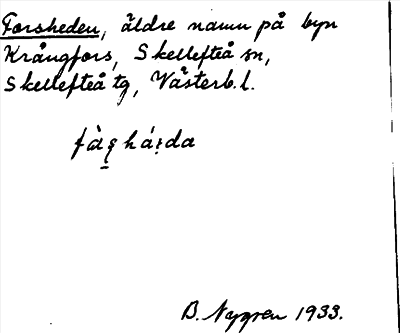 Forsheden, äldre namn på byn
Krångfors, Skellefteå sn,
Skellefteå tg, Västerb. l.
B. Nygren 1933.